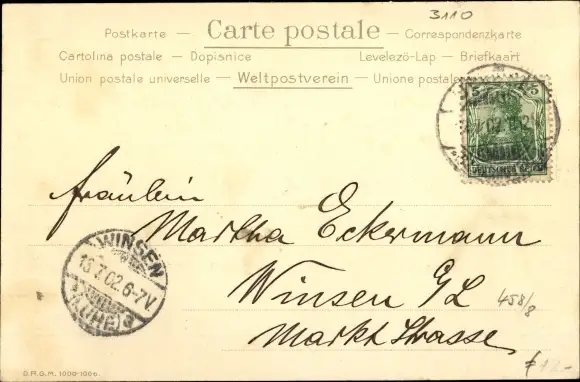 3110
Postkarte — Carte postale — Correspondenzkarte
Cartolina postale — Dopisnice Levelezö-Lap — Briefkaart
Union postale universelle — Weltpostverein — Unione postale
5 5
02
Fräulein
Martha Eckermann
Winsen a/L
Markt Strasse
458/8
WINSEN
13.7.02.6-7V.
(LUHE)
D.R.G.M. 1000-1006.